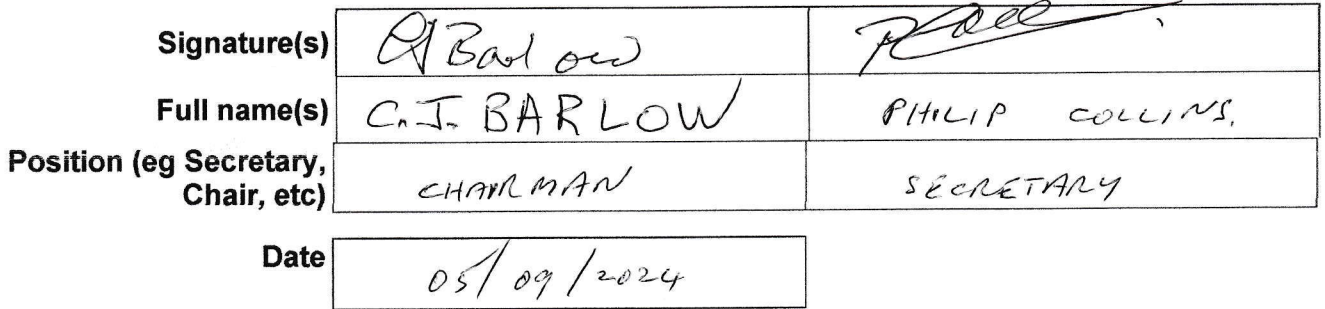 Signature(s) CJ Barlow
Full name(s) C.J. BARLOW PHILIP COLLINS.
Position (eg Secretary, Chair, etc) CHAIRMAN SECRETARY
Date 05/09/2024